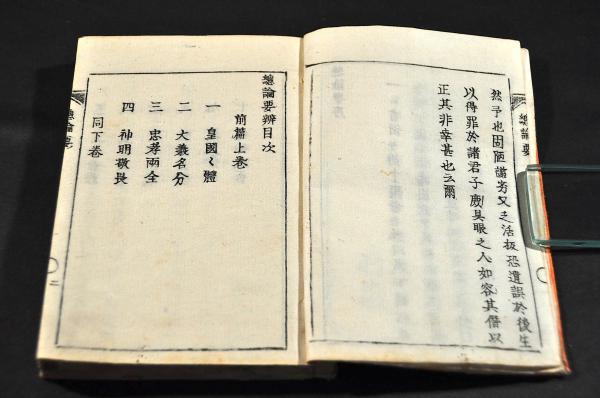 總論要
然予也固陋謭劣又之活板恐遺誤於後生
以得罪於諸君子庶具眼之人如容其僭以
正其非幸甚也云爾
總論要辨目次
前篇上卷
一 皇國々體
二 大義名分
三 忠孝兩全
四 神明敬畏
同下卷
總論要
二